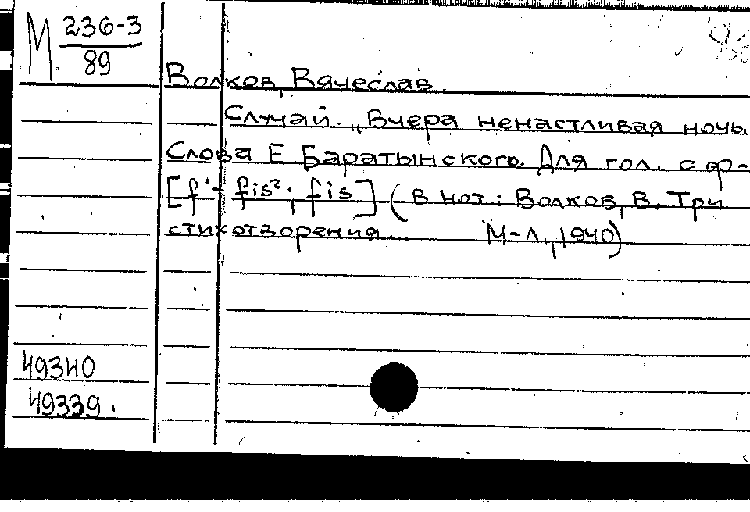 М 236-3
89
Волков, Вячеслав.
Случай. „Вчера ненастливая ночь
Слова Е Баратынского. Для гол. с ф-
[f¹- fis²; fis] (В нот.: Волков, В. Три
стихотворения... М-Л., 1940)
49340
49339.